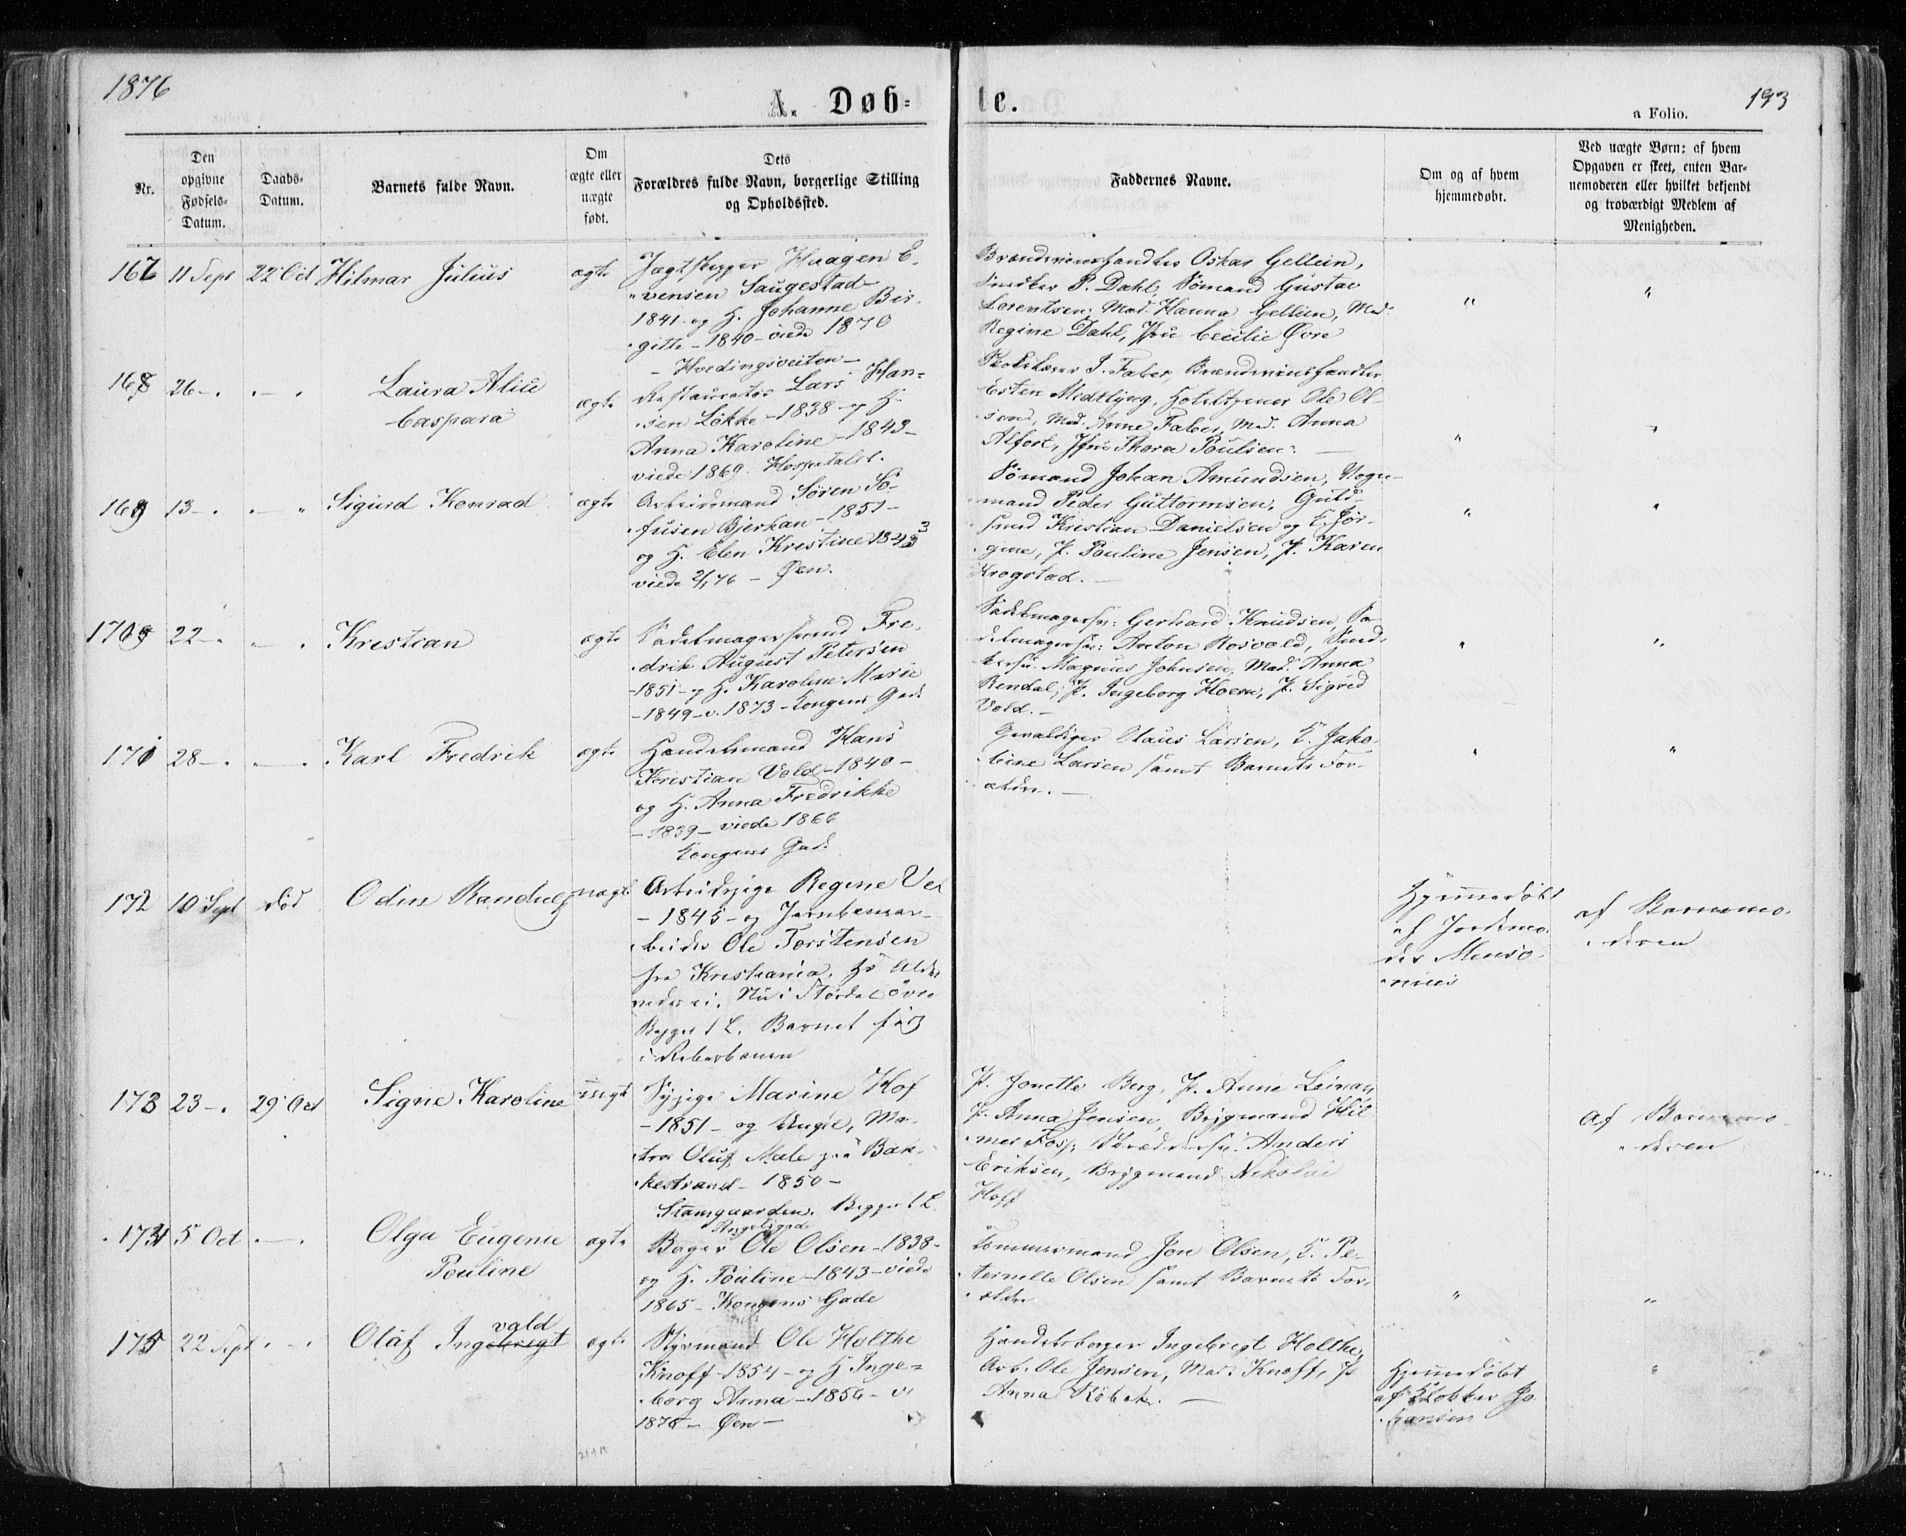 1876
A. Døb-
te.
193
a Folio.
Nr.
Den
opgivne
Fødsels-
Datum.
Daabs-
Datum.
Barnets fulde Navn.
Om
ægte eller
uægte
født.
Dets
Forældres fulde Navn, borgerlige Stilling
og Opholdssted.
Faddernes Navne.
Om og af hvem
hjemmedøbt.
Ved uægte Børn: af hvem
Opgaven er skeet, enten Bar-
nemoderen eller hvilket bekjendt
og troværdigt Medlem af
Menigheden.
167 11 Sept 22 Oct Hilmar Julius ægte
Jægtskipper Haagen E-
vensen Saugestad
1841 og H. Johanne Bir-
gitte - 1840 - viede 1870
- Hvedingsveiten -
Brændevinshandler Oskar Gellein,
Snedker P. Dahl, Sømand Gustav
Lorentsen, Mad. Hanna Gellein, Mad.
Regine Dahl, Jfru Cecilie Øvre
" "
168 26 - . - . Laura Alice
Caspara
ægte
Restauratør Lars Han-
sen Løkke - 1838 - og H.
Anna Karoline - 1843 -
viede 1869. Hospitalet.
J. Faber, Brændevinshandler
Esten Midtlyng, Ole Ol-
sen, Mad. Anne Faber, Mad. Anna
Alfort, Jfru Thora Poulsen. -
" "
169 13 - . - " Sigurd Konrad ægte
Arbeidsmand Søren So-
fusen Bjerkan - 1851 -
og H. Elen Kristine 1843
viede 2/1 76 - Øen.
Sømand Johan Amundsen, Vogn-
mand Peder Guttormsen, Guld-
smed Kristian Danielsen og H. Jør-
gine, P. Pauline Jensen, P. Karen
Krogstad. -
" "
170 22 - . - . Krestian ægte
Sadelmagersvend Fre-
drik August Petersen
- 1851 - og H. Karoline Marie
- 1849 - v. 1873 - Kongens Gade
Sadelmagersv: Gerhard Knudsen, Sa-
delmagersv: Anton Rosvold, Sned-
kersv. Magnus Johnsen, Mad. Anna
Rendal, P. Ingeborg Hoem, P. Sigrid
Vold. -
" "
171 28 - . - . Karl Fredrik ægte
Handelsmand Hans
Kristian Vold - 1840 -
og H. Anna Fredrikke
- 1839 - viede 1866
Kongens Gade
Gevaldiger Claus Larsen, H. Jako-
bine Larsen samt Barnets For-
ældre. -
" "
172 10 Sept død Odin Randulf uægte
Arbeidspige Regine
- 1845 - og Jernbanear-
beider Ole Torstensen
fra Kristiania, hs Alder
vides ei. Nu i Størdal øvre
Begges 1 L. Barnet født
i Reberbanen
Hjemmedøbt
af Jordmo-
der
af Barnemo-
deren
173 23 - . 29 Oct Signe Karoline uægte
Sypige Marine Hof
- 1851 - og Ungk, Ma-
tros Oluf Male paa Bak-
kestrand - 1850 -
Stamgaarden. Begges 1 L.
P. Jonette Berg, P. Anne Leinan,
P. Anna Jensen, Brygmand Hil-
mer Foss, Skræddersv: Anders
Eriksen, Brygmand Nikolai
Hoff
Af Barnemo-
deren
174 5 Oct . - . Olga Eugenie
Pouline
ægte
Bager Ole Olsen - 1838 -
og H. Pouline - 1843 - viede
1865 - Kongens Gade
Tømmermand Jon Olsen, H. Pe-
ternelle Olsen samt Barnets For-
ældre
" "
175 22 Sept . - . Olaf Ingebrigt
vald
ægte
Styrmand Ole Holthe
Knoff - 1854 - og H. Inge-
borg Anna - 1856 - v.
1876 - Øen -
Handelsborger Ingebrigt Holthe,
Arb. Ole Jensen, Mad. Knoff, P.
Anna -
Hjemmedøbt
af Klokker Jo-
hansen
"